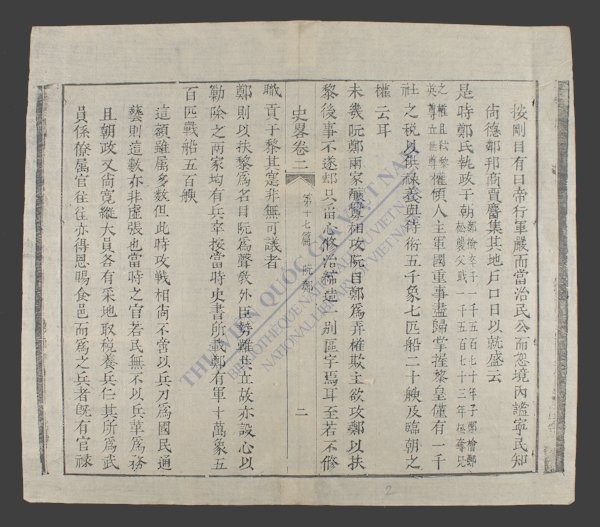 按剛目有曰帝行軍嚴而當治民公而恕境內謐寧民知
尚德鄰邦商賈麕集其地戶口日以就盛云
是時鄭氏執政于朝
之權且
權傾人主軍國重事盡歸掌握黎皇僅有一千
社之稅以供祿養與侍衛五千象七匹船二十艘及臨朝之
權云耳
未幾阮鄭兩家釁相攻阮目鄭為弄權欺主欲攻鄭以扶
黎後事不遂却只留心修治締造一別區宇焉耳至若不修
史畧卷二
第十七篇 阮鄭
二
職貢于黎其寔非無可議者
鄭則以扶黎為名目阮為聲敎外臣勢難共立故亦設心以
勦除之兩家均有兵寧按當時史書所載鄭有軍十萬象五
百匹戰船五百艘
這額雖屬多數但此時攻戰相尚不啻以兵刀為國民通
藝則這數亦非虛張也當時之官若民無不以兵革為務
且朝政又尚寬縱大員各有采地取稅養兵任其所為武
員係僚屬官往往亦得恩賜食邑而為之兵者旣有官祿
THƯ VIỆN QUỐC GIA VIỆT NAM
BIBLIOTHÈQUE NATIONALE DU VIETNAM
NATIONAL LIBRARY OF VIETNAM
2